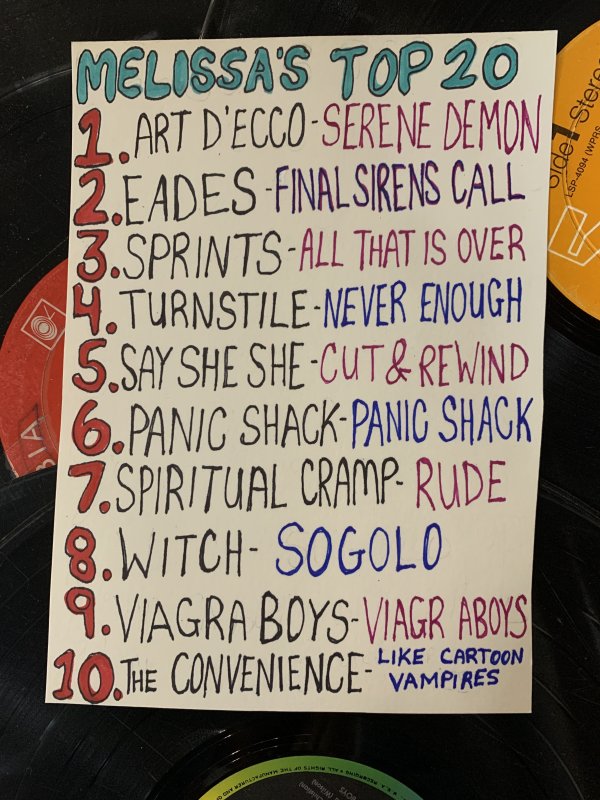 MELISSA'S TOP 20
1. ART D'ECCO - SERENE DEMON
2. EADES - FINAL SIRENS CALL
3. SPRINTS - ALL THAT IS OVER
4. TURNSTILE - NEVER ENOUGH
5. SAY SHE SHE - CUT & REWIND
6. PANIC SHACK - PANIC SHACK
7. SPIRITUAL CRAMP - RUDE
8. WITCH - SOGOLO
9. VIAGRA BOYS - VIAGR ABOYS
10. THE CONVENIENCE - LIKE CARTOON
VAMPIRES
Side 1 Stereo
LSP-4094 (WPRS
BIA